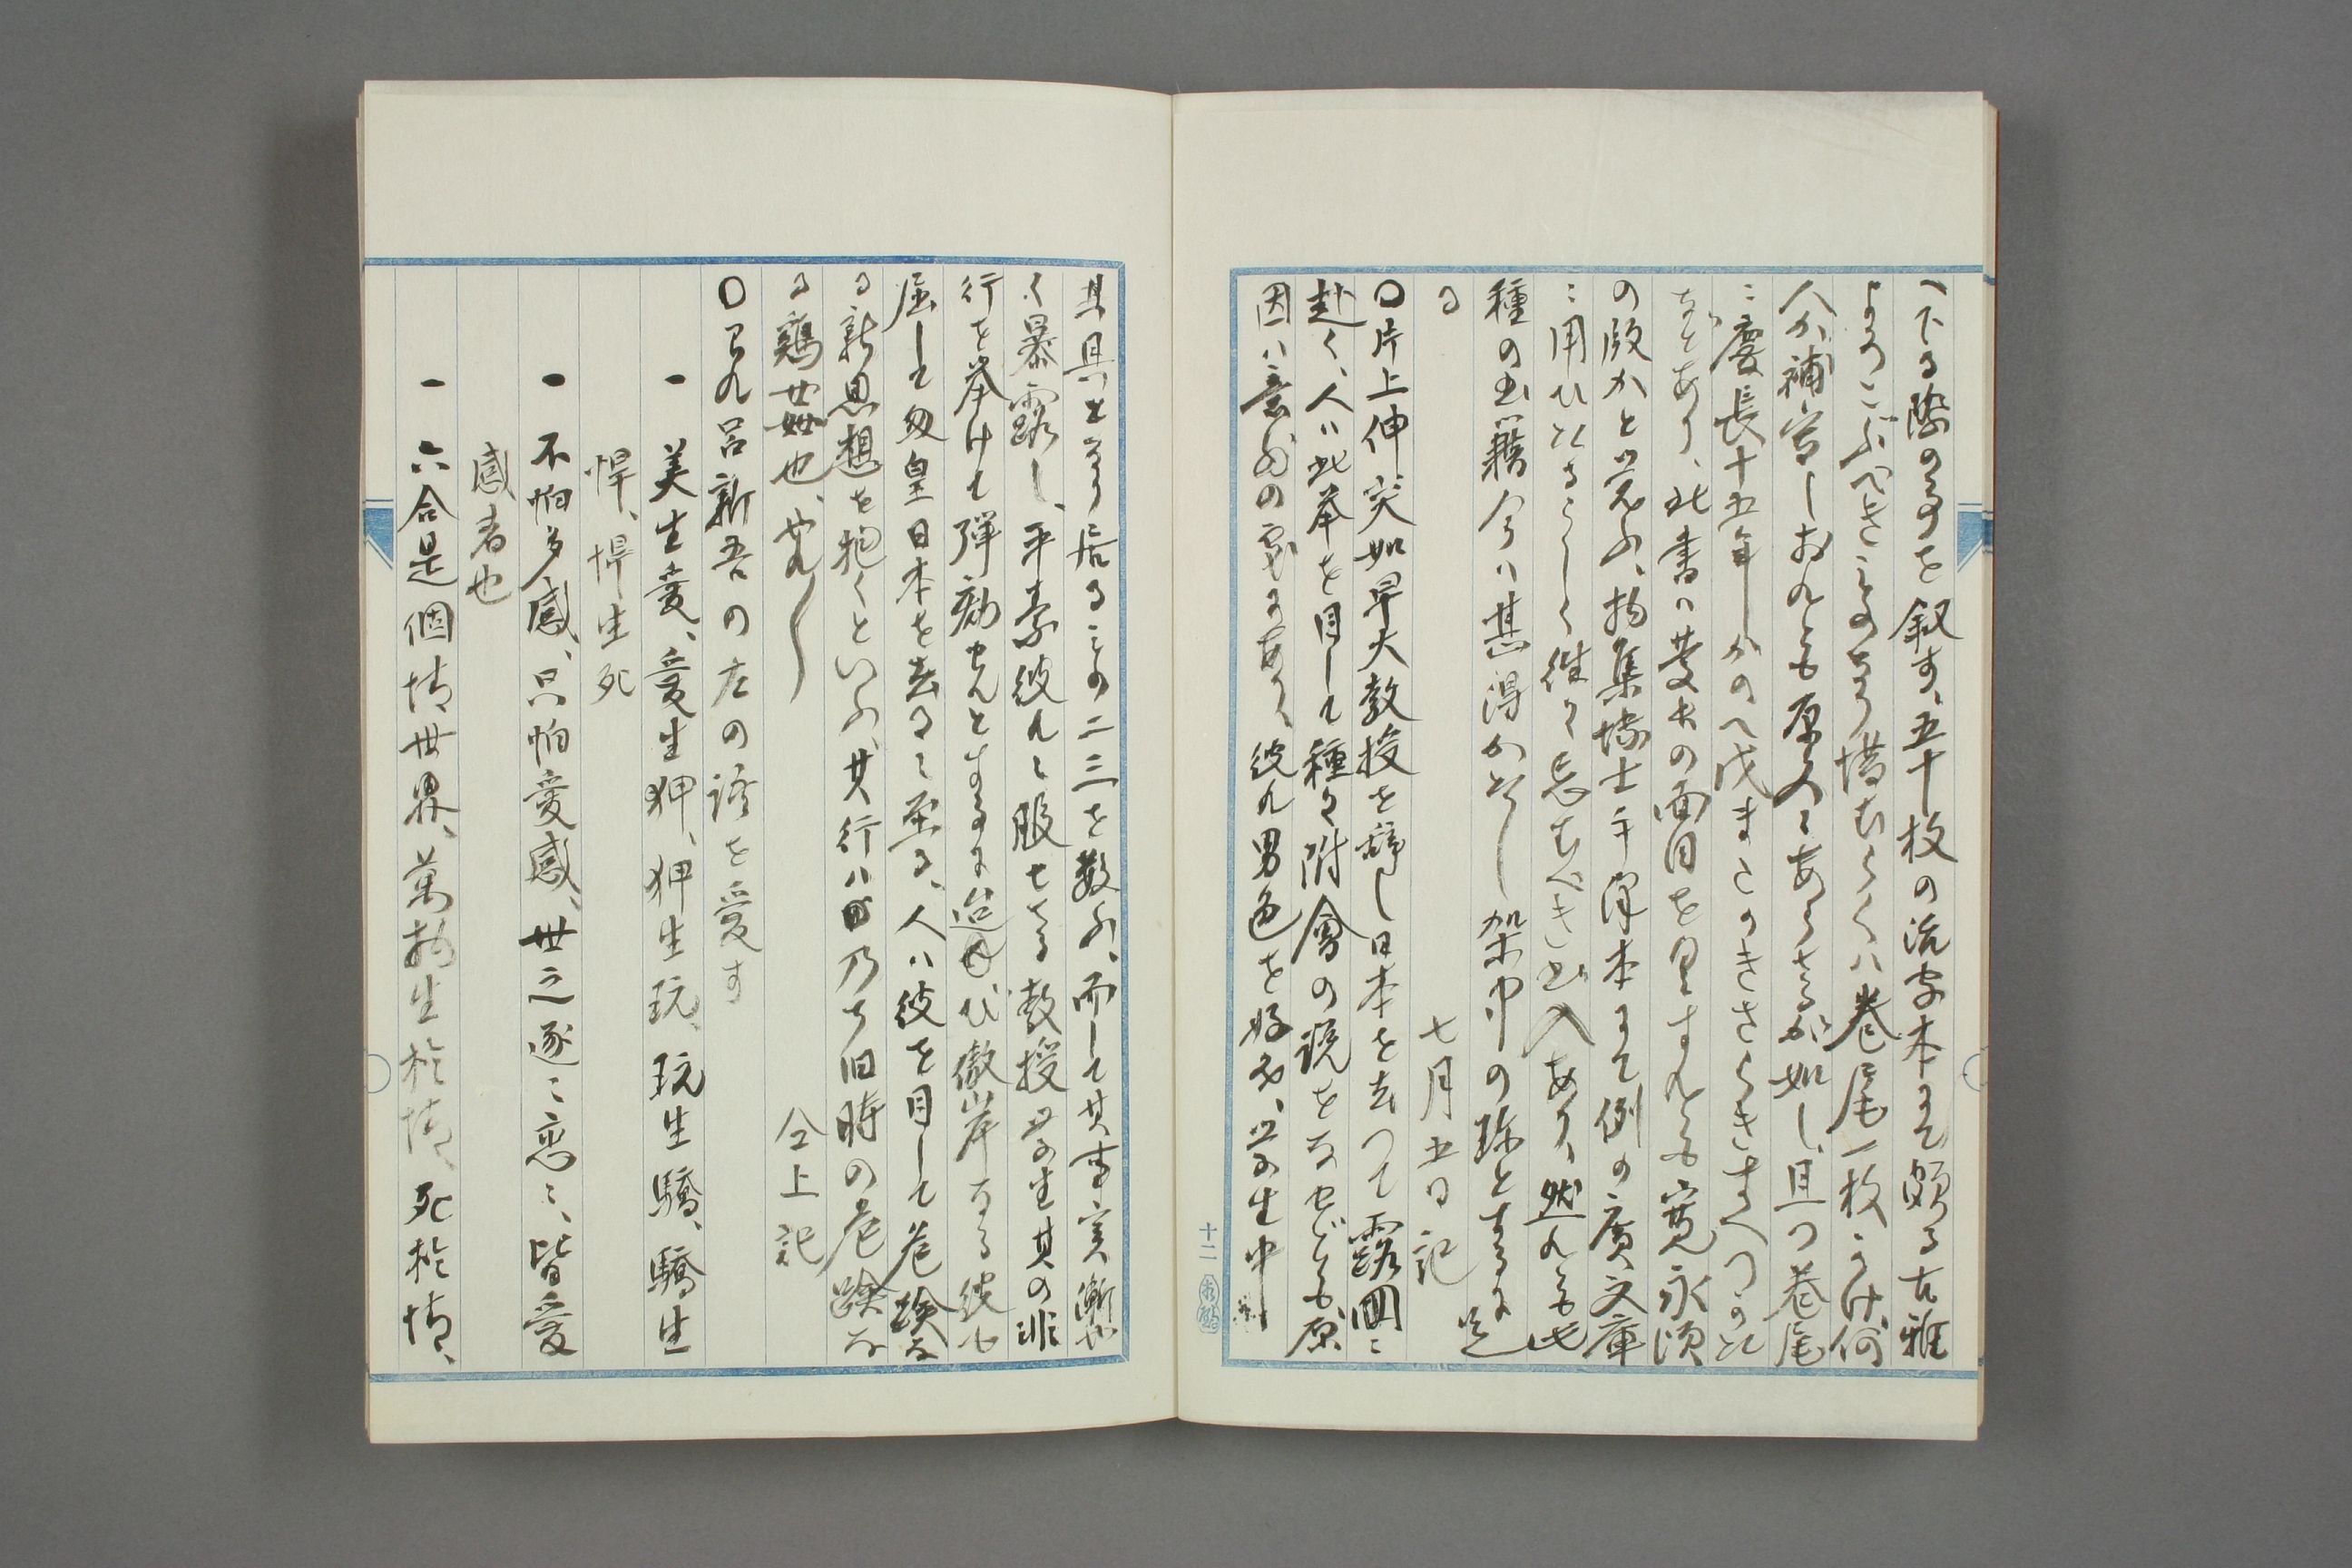 へ下る際のことを叙す、五十枚の流字本にて頗る古雅
よろこぶべきことなり惜むらくハ巻尾一枚かけ何
人か補写しおれとも原人にあらさるか如し、且つ巻尾
ニ慶長十五年しかのへ戌まこのきさらきすへつかた
なとあり、此書ハ
の版かと覚ふ、
ニ用ひたるらしく往々忘むべき書入あり、然れとも此
種の書籍今ハ甚得かたし架中の珍とするに足
る
七月五日記
〇片上伸突如早大教授を辞し日本を去つて露国ニ
赴く、人ハ此挙を目して種々附会の説をなせども原
因ハ意外の処にあり、彼れ男色を好み、学生中
其具となり居るもの二三を数ふ、而して其事実漸や
く暴露し、平素彼れに服せさる教授学生其の非
行を挙けて弾劾せんとするに迨び傲岸なる彼も
屈して匆皇日本を去るに至る、人ハ彼を目して危険な
る新思想を抱くといふ、其行ハ乃ち旧時の危険な
る鶏姦也、
仝上記
〇われ呂新吾の左の語を愛す
一 美生愛、愛生狎、狎生玩、玩生驕、驕生
悍、悍生死
一 不怕多感、只怕愛感、世之逐ニ恋ニ、皆愛
感者也
一 六合是個情世界、萬物生於情、死於情、
十二